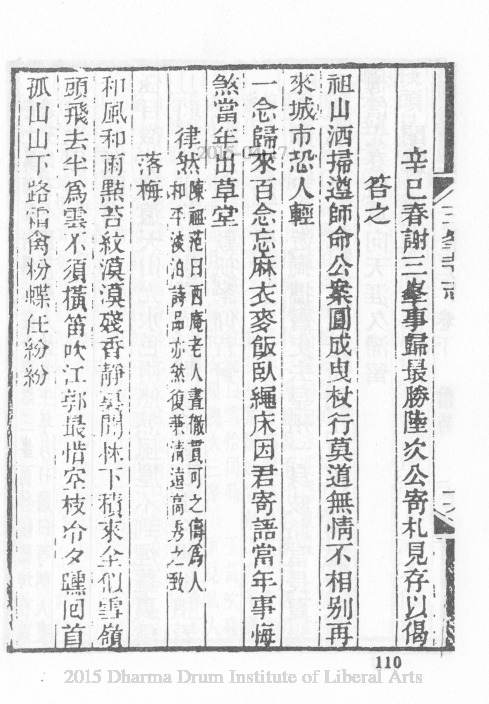 辛巳春謝三峯事歸最勝陸次公寄札見存以偈
答之
祖山洒掃遵師命公案圓成曳杖行莫道無情不相別再
來城市恐人輕
一念歸來百念忘麻衣麥飯臥繩床因君寄語當年事悔
煞當年出草堂
律然
陳祖范曰酉庵老人晝徹貫可之儔爲人
和平淡泊詩品亦然復兼清遠高秀之致
落梅
和風和雨點苔紋漠漠殘香靜裏聞林下積來全似雪嶺
頭飛去半爲雲不須橫笛吹江郭最惜空枝冷夕曛回首
孤山山下路霜禽粉蝶任紛紛
三峯寺志
110
2015 Dharma Drum Institute of Liberal Arts